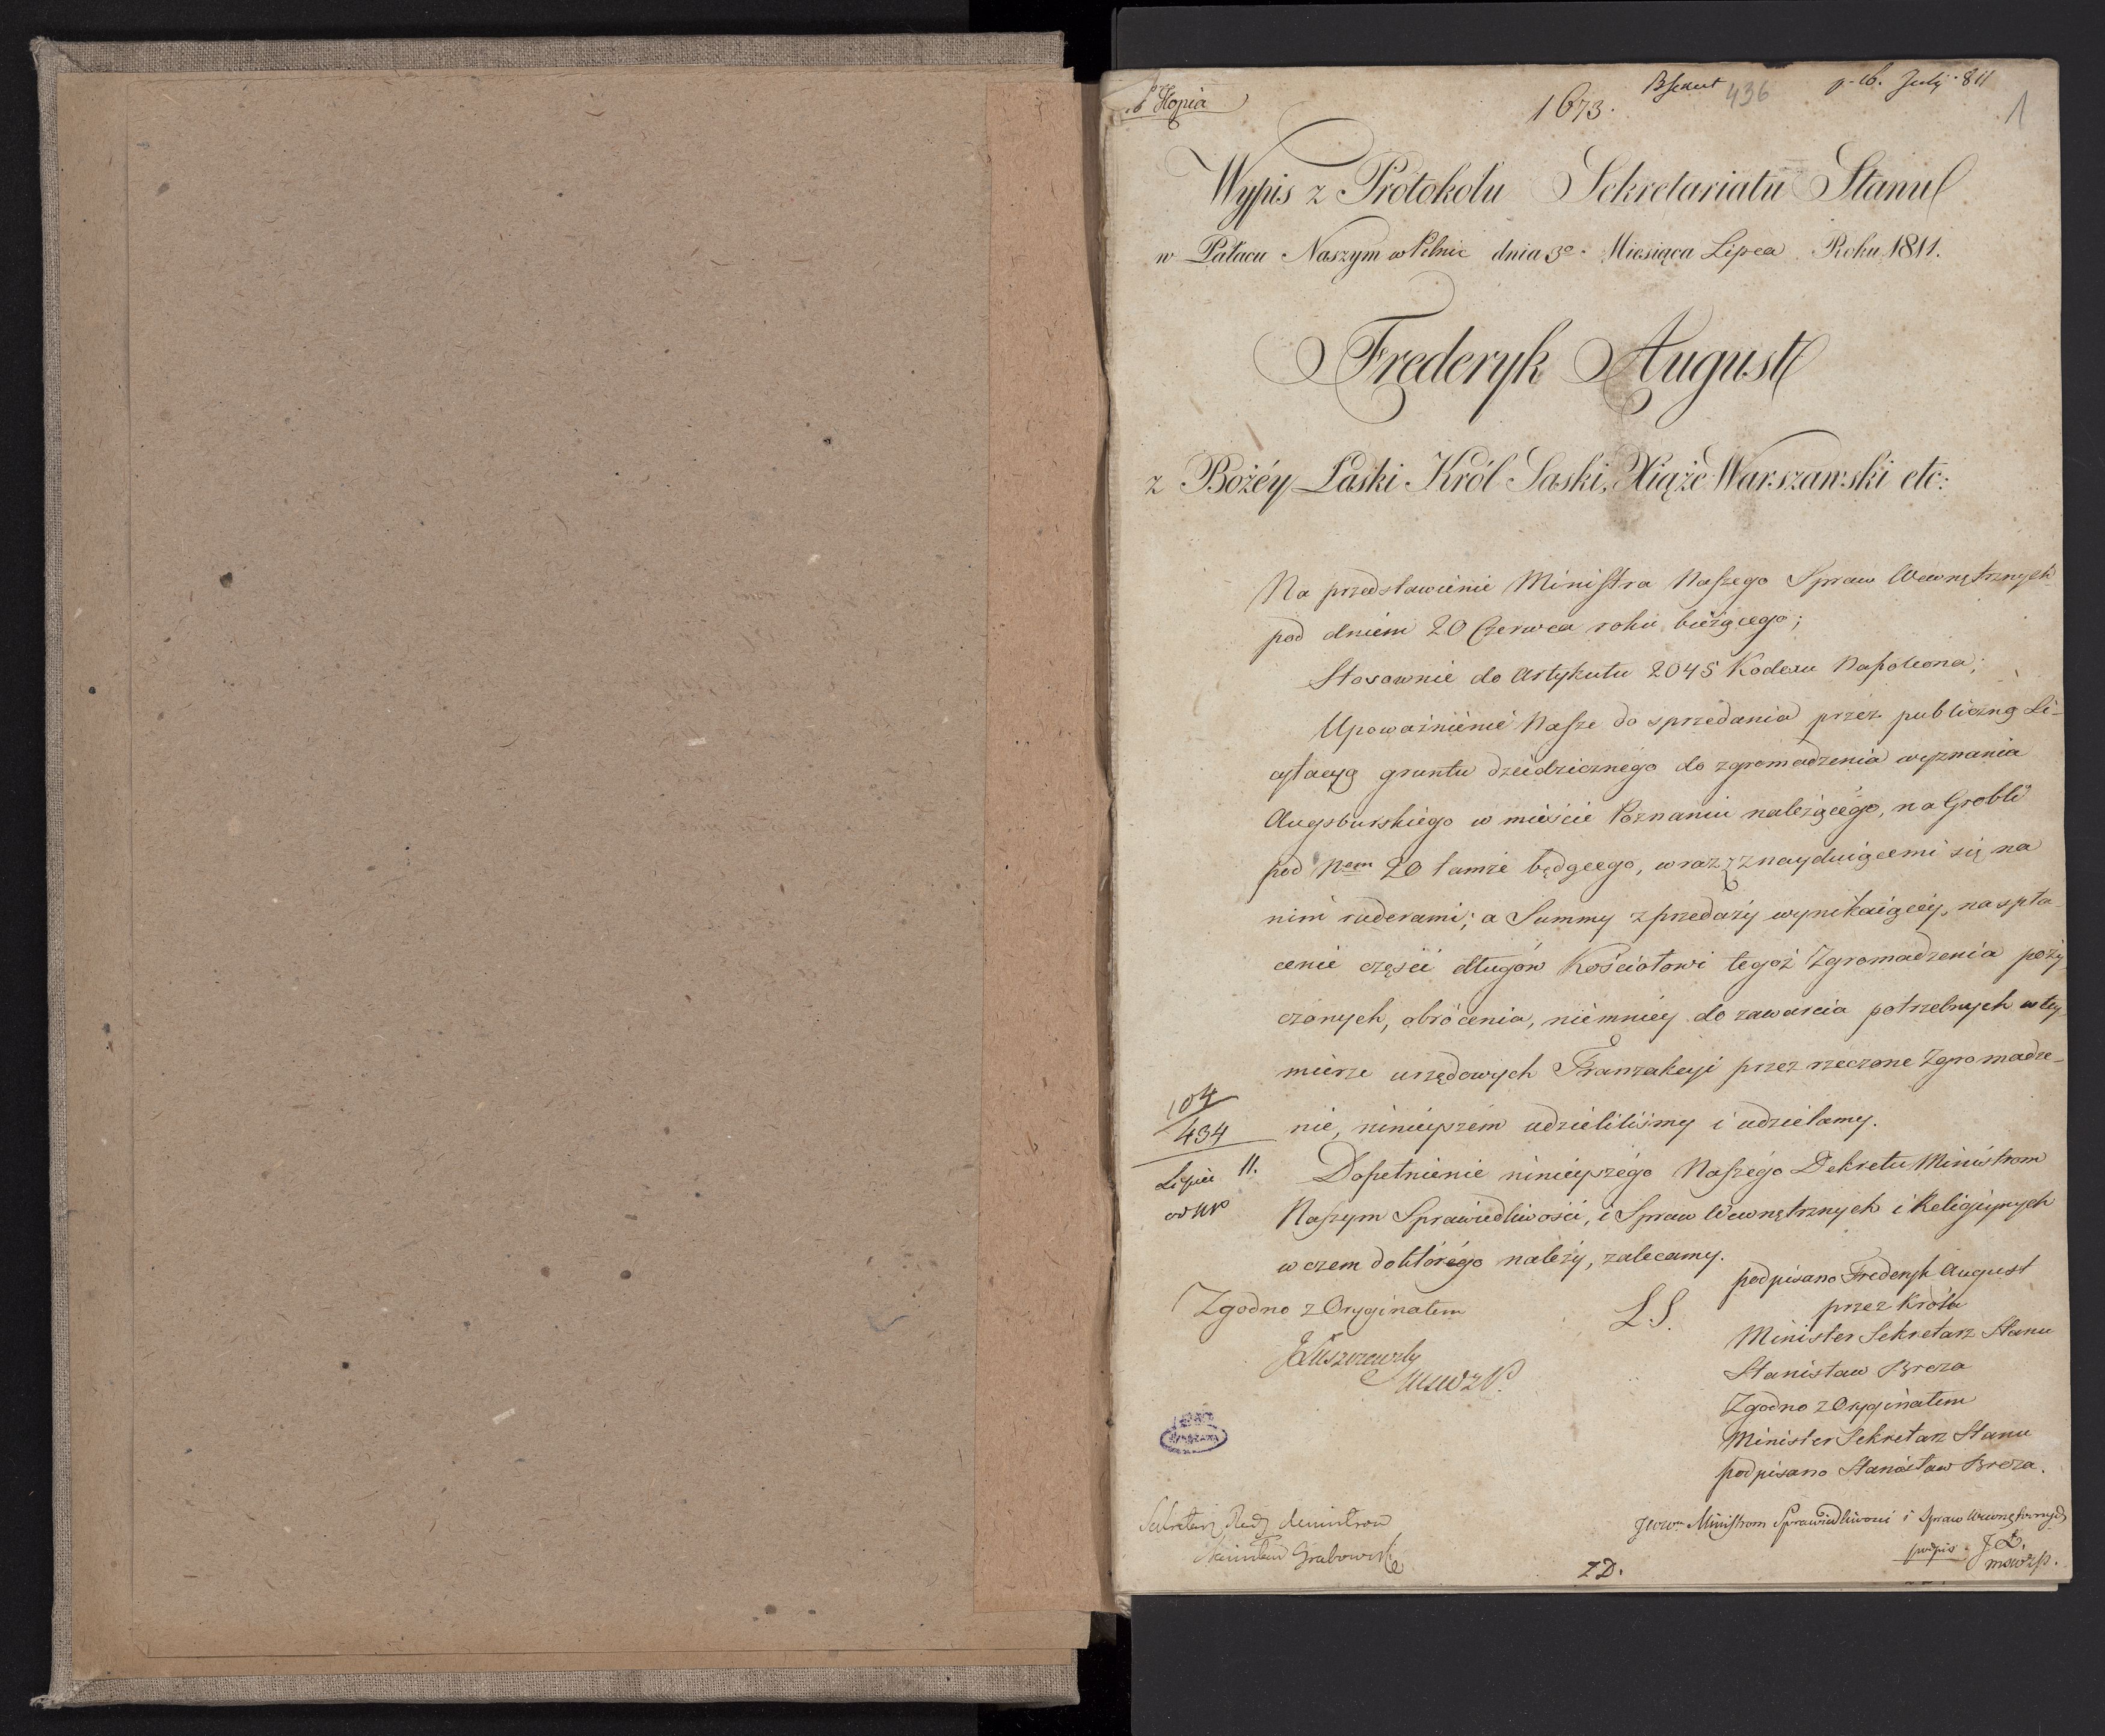 Kopia
1673.
436
p. 16. July 811
1
Wypis z Protokołu Sekretariatu Stanu
w Pałacu Naszym w Pilnic dnia 3o. Miesiąca Lipca Roku 1811.
Frederyk August
z Bożéy Łaski Król Saski, Xiąże Warszawski etc:
Na przedstawienie Ministra Naszego Spraw Wewnętrznych
pod dniem 20 Czerwca roku bieżącego;
Stosownie do Artykułu 2045 Kodexu Napoleona;
Upoważnienie Nasze do sprzedania przez publiczną Li-
cytacyą gruntu dziedzicznego do zgromadzenia wyznania
Augsburskiego w mieście Poznaniu należącego, na Grobli
pod Nem 20 tamże będącego, wraz z znayduiącemi się na
nim ruderami; a Summy z przedaży wynikaiącéy, na spła-
cenie części długów Kościołowi tegoż Zgromadzenia poży-
czonych, obrócenia, niemniéy do zawarcia potrzebnych w téy
mierze urzędowych Tranzakcyi przez rzeczone Zgromadze-
nie, ninieyszem udzieliliśmy i udzielamy.
104
434
Lipiec 11.
Dopełnienie ninieyszégo Naszégo Dekretu Ministrom
Naszym Sprawiedliwości, i Spraw Wewnętrznych i Religiynych
w czem do którégo należy, zalecamy.
podpisano Frederyk August
przez Króla
Zgodno z Oryginałem
L.S.
Minister Sekretarz Stanu
Stanisław Breza
Zgodno z Oryginałem
Minister Sekretarz Stanu
podpisano Stanisław Breza.
JWW. Ministrom Sprawiedliwości i Spraw Wewnętrznych
Sekretarz Rady Ministrów
Stanisław Grabowski
podpis. J. Ł.
MSWzP.
ZD.